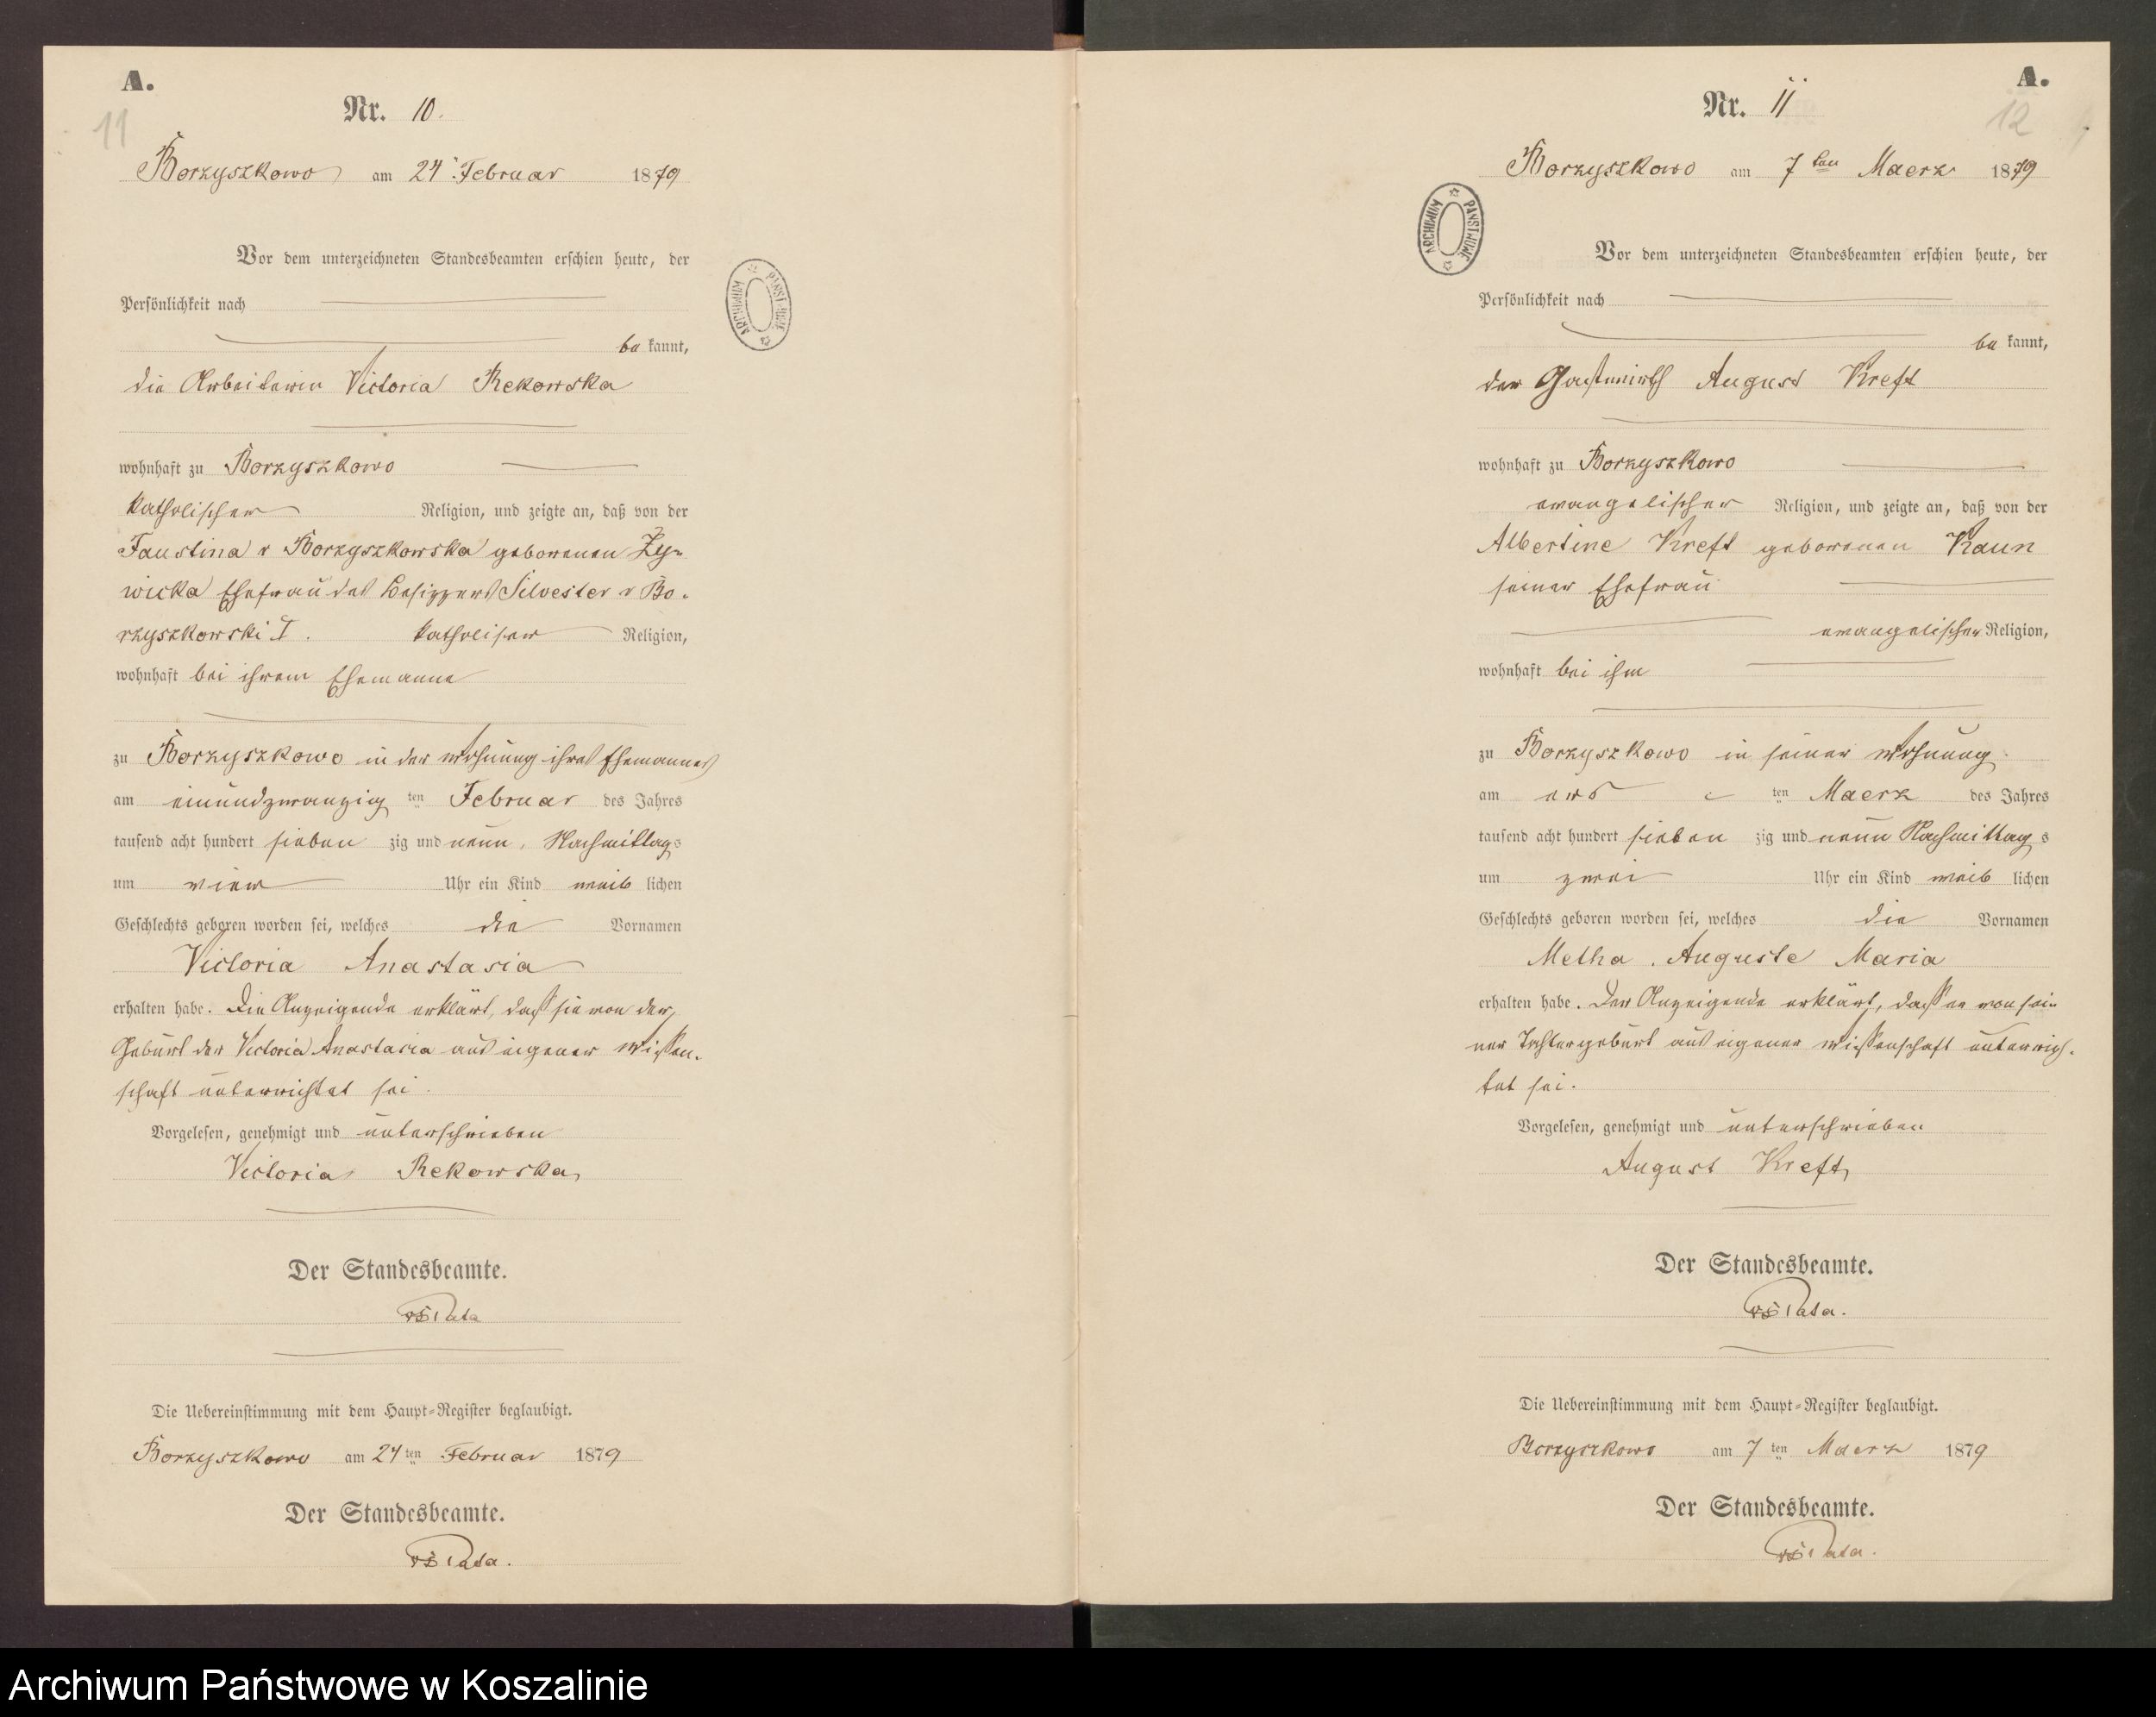 A.
11
Nr. 10.
Borzyszkowo am 24 Februar 1879
Vor dem unterzeichneten Standesbeamten erschien heute, der
Persönlichkeit nach
be kannt,
die Arbeiterin Victoria Rekowska
wohnhaft zu Borzyszkowo
katholischer Religion, und zeigte an, daß von der
Faustina v Borzyszkowska geborenen Zy-
wicka Ehefrau des Besitzers Silvester v Bo-
rzyszkowski I. katholischer Religion,
wohnhaft bei ihrem Ehemanne
zu Borzyszkowo in der Wohnung ihres Ehemannes
am einundzwanzig ten Februar des Jahres
tausend acht hundert sieben zig und neun, Nachmittags
um vier Uhr ein Kind weib lichen
Geschlechts geboren worden sei, welches die Vornamen
Victoria Anastasia
erhalten habe. Die Anzeigende erklärt, daß sie von der
Geburt der Victoria Anastasia aus eigener Wissen-
schaft unterrichtet sei.
Vorgelesen, genehmigt und unterschrieben
Victoria Rekowska
Der Standesbeamte.
Die Uebereinstimmung mit dem Haupt-Register beglaubigt.
Borzyszkowo am 24 ten Februar 1879
Der Standesbeamte.
ARCHIWUM PAŃSTWOWE
A.
12
Nr. 11
Borzyszkowo am 7 ten Maerz 1879
ARCHIWUM PAŃSTWOWE
Vor dem unterzeichneten Standesbeamten erschien heute, der
Persönlichkeit nach
be kannt,
der Gastwirth August Kreft
wohnhaft zu Borzyszkowo
evangelischer Religion, und zeigte an, daß von der
Albertine Kreft geborenen Kaun
seiner Ehefrau
evangelischer Religion,
wohnhaft bei ihm
zu Borzyszkowo in seiner Wohnung
am ers ten Maerz des Jahres
tausend acht hundert sieben zig und neun Nachmittag s
um zwei Uhr ein Kind weib lichen
Geschlechts geboren worden sei, welches die Vornamen
Metha Auguste Maria
erhalten habe. Der Anzeigende erklärt, daß er von sei-
ner Tochtergeburt aus eigener Wissenschaft unterrich-
tet sei.
Vorgelesen, genehmigt und unterschrieben
August Kreft
Der Standesbeamte.
Die Uebereinstimmung mit dem Haupt-Register beglaubigt.
Borzyszkowo am 7 ten Maerz 1879
Der Standesbeamte.
Archiwum Państwowe w Koszalinie